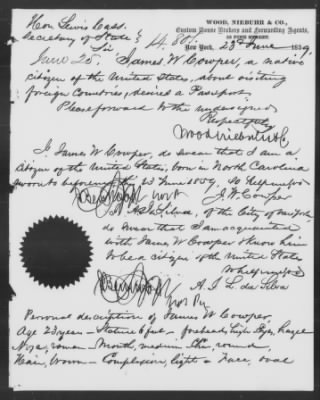 WOOD, NIEBUHR & CO.,
Custom House Brokers and Forwarding Agents,
New York, 23d June 1859
Hon Lewis Cass.
Secretary of State
Sir 14.881.
June 25. James W Cowper, a native
citizen of the United States, about visiting
foreign Countries, desires a Passport.
Please forward to the undersigned
Respectfully
Wood Niebuhr & Co
I James W Cowper, do swear that I am a
citizen of the United States, born in North Carolina
Sworn to before me this 23 June 1859. So help me God
J. W. Cowper
of the City of New York,
do swear that I am acquainted
with James W Cowper & know him
to be a citizen of the United States
So help me God
A. J. L. da Silva
Not Pu
Personal description of James W Cowper.
Age 23 years - Stature 6 feet - forehead, high Eyes, hazel
Nose, roman - Mouth, medium - Chin, round
Hair, brown - Complexion, light - Face, oval